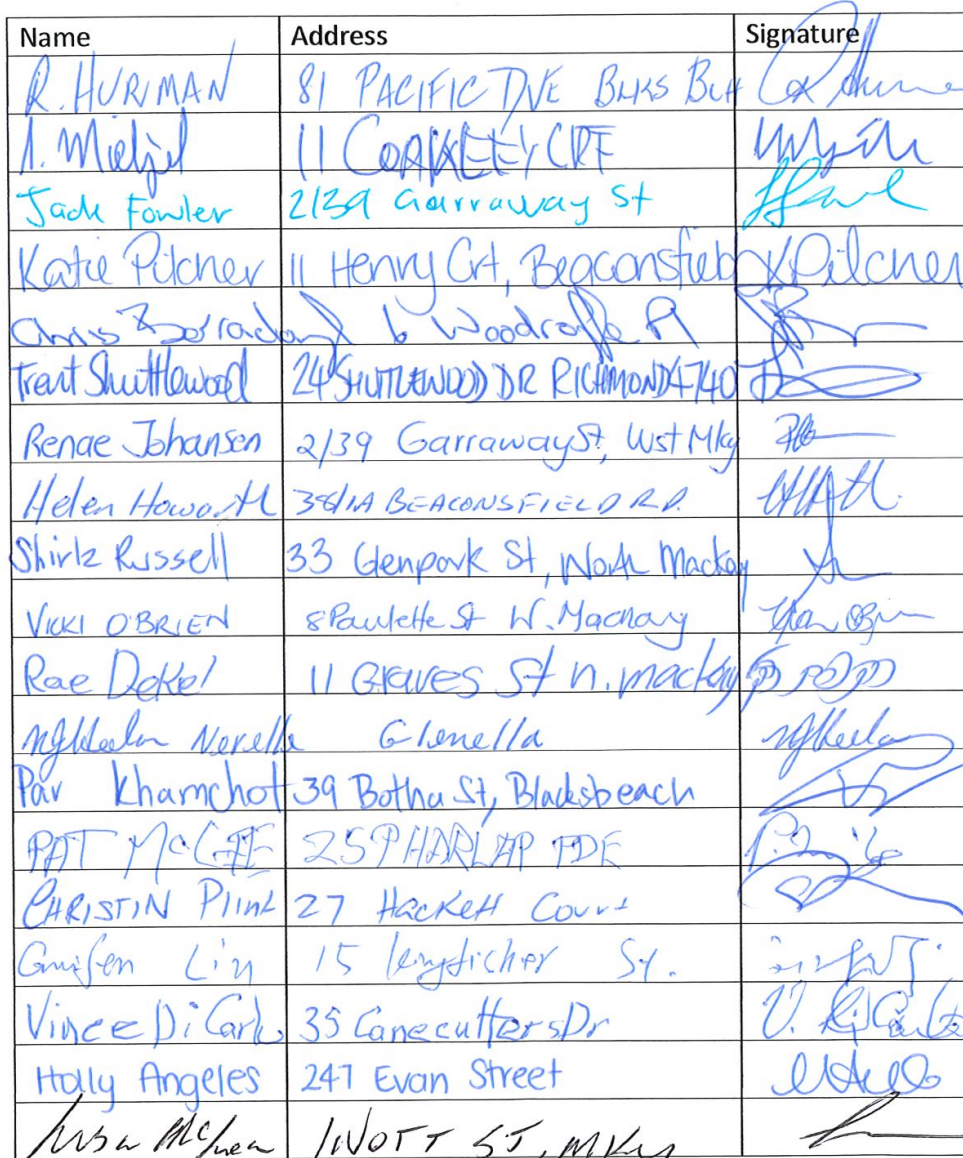 Name Address Signature
R. HURIMAN 81 PACIFIC DVE BLKS BCH
11
Jack Fowler 2/39 Garraway St
Katie Pilcher 11 Henry Crt, Beaconsfield K Pilcher
Chris 6 Woodroffe Pl
Trent Shuttlewood 24 SHUTTLEWOOD DR RICHMOND 4740
Renae Johansen 2/39 Garraway St, Wst Mky
Helen Howarth BEACONSFIELD RD.
Shirlz Russell 33 Glenpark St, North Mackay
VICKI O'BRIEN 8 Paulette St W. Mackay
Rae Dekel 11 Graves St n. mackay
Nerelle Glenella
Pav Khamchot 39 Botha St, Blacksbeach
PAT McGEE 25 PHARLAP PDE
CHRISTIN Plint 27 Hackett Court
Lin 15 St.
Vince Di Carlo 35 Canecutters Dr
Holly Angeles 247 Evan Street
NOTT ST, MKy